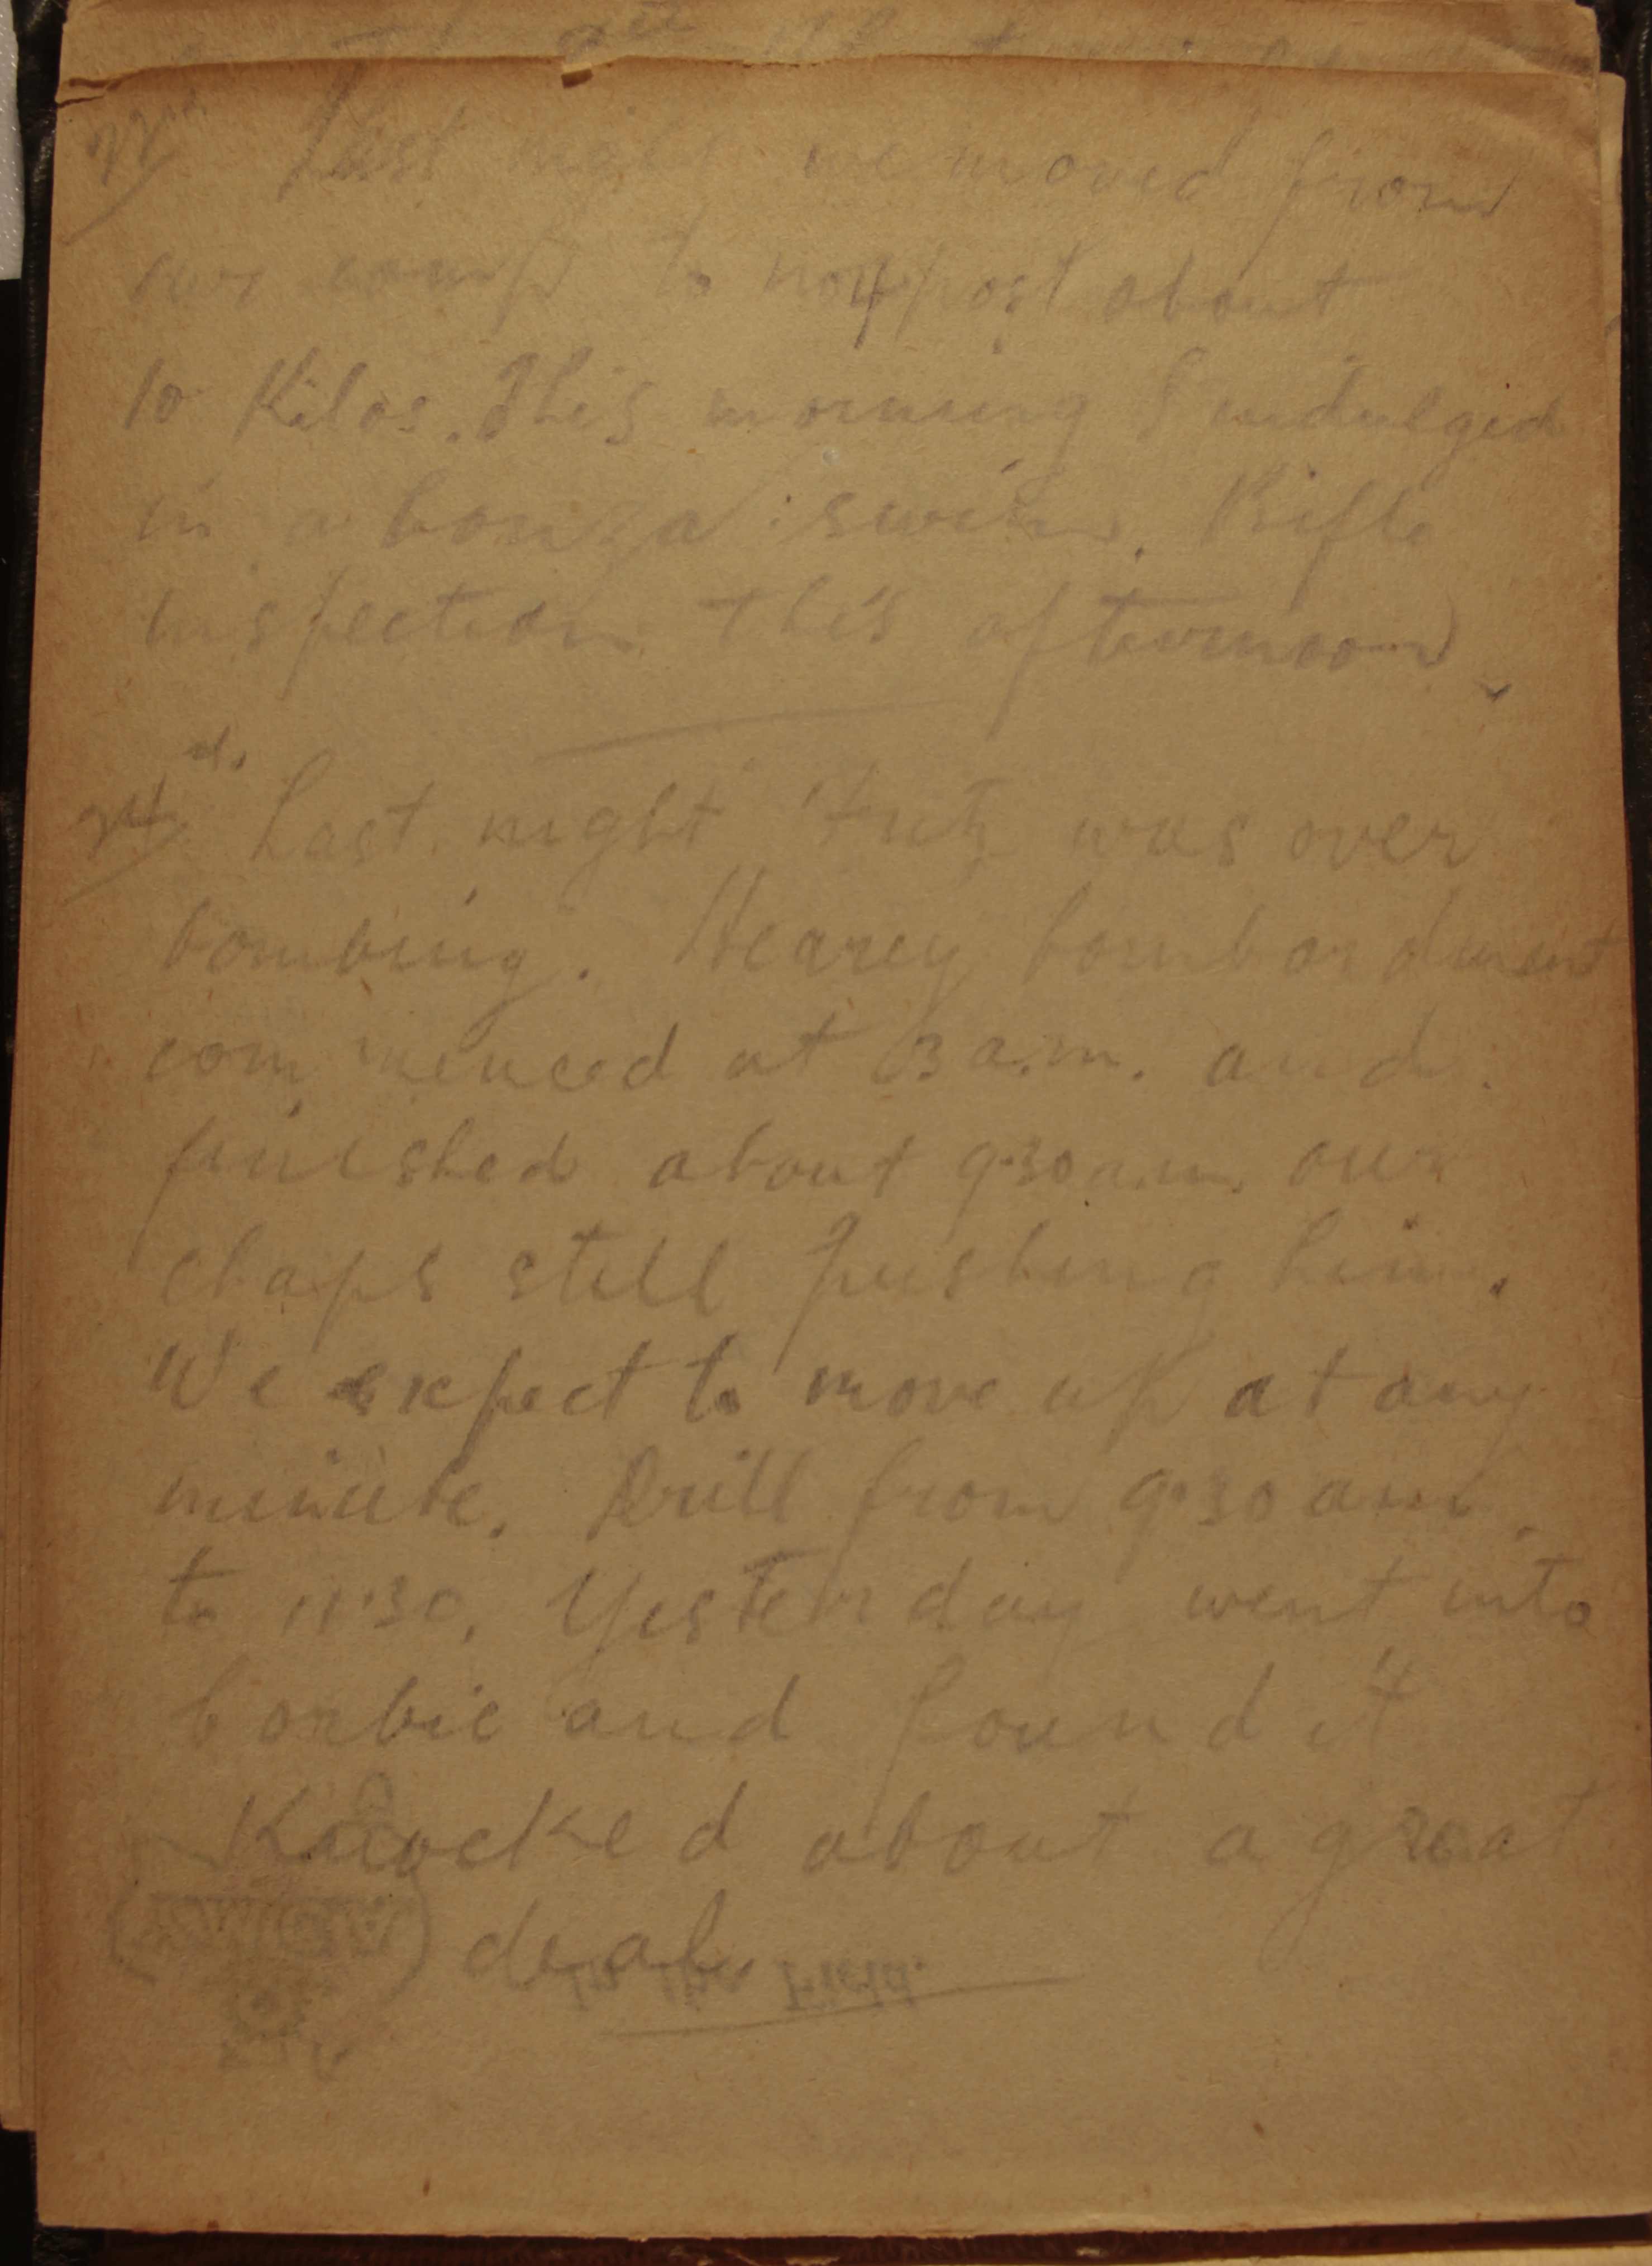 22nd Last night we moved from
our camp to no 4 post about
10 Kilos. This morning I indulged
in a bonza swim. Rifle
inspection this afternoon.
24 Last night Fritz was over
bombing. Heavey bombardment
commenced at 3 a.m. and
finished about 9.30 a.m. our
chaps still pushing him.
We expect to move up at any
minute. Drill from 9.30 am
to 11.30. Yesterday went into
Corbie and found it
Knocked about a great
deal
In the Field.